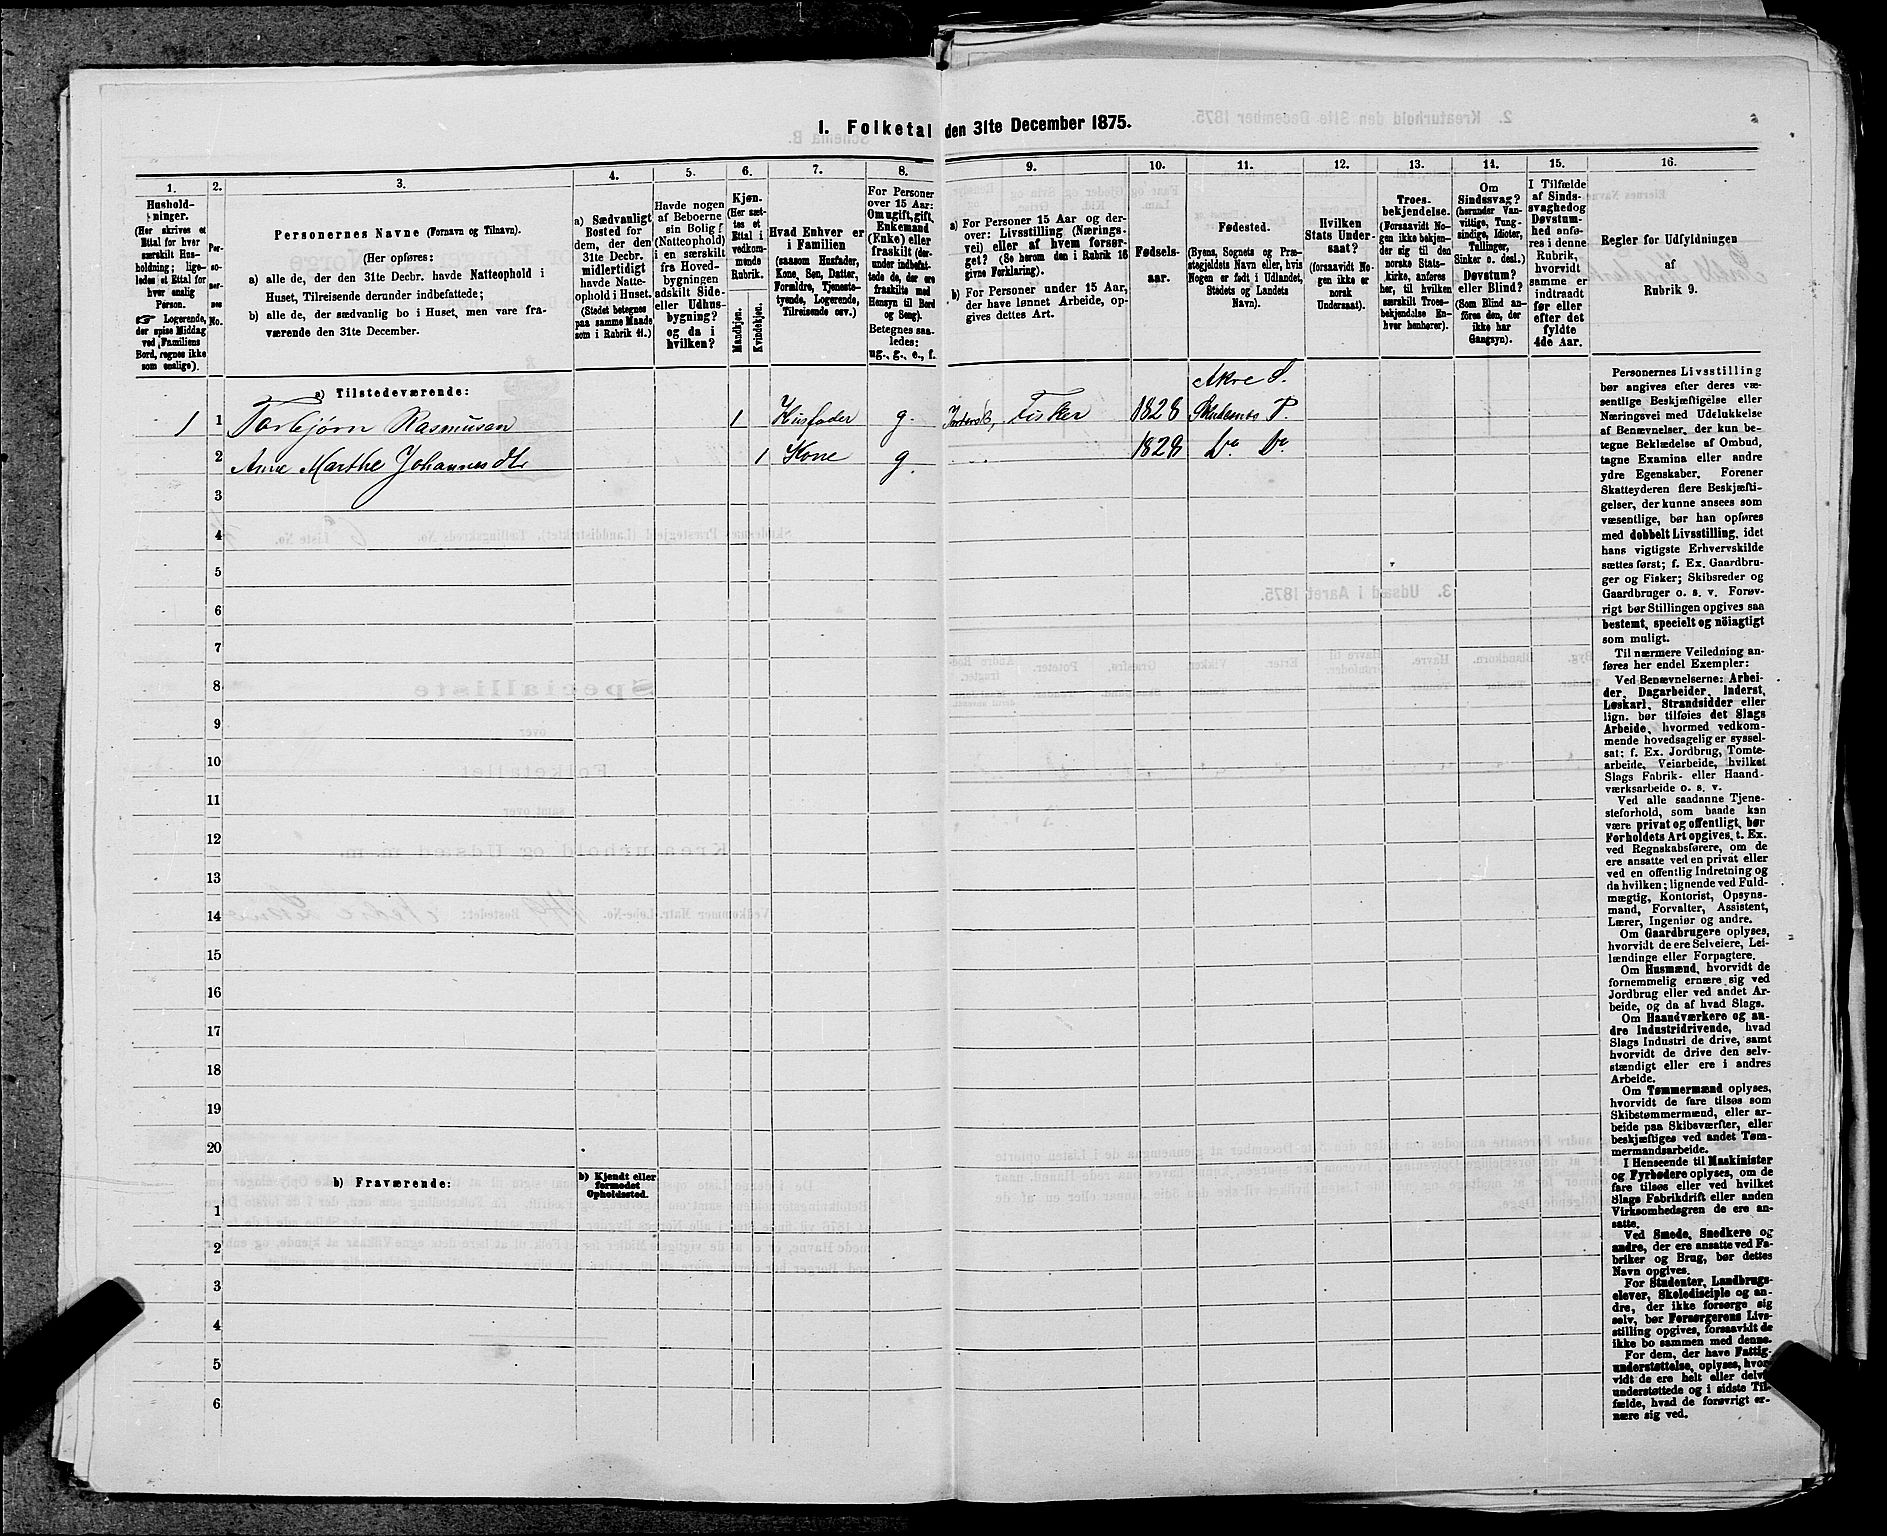 1. Folketal den 31te December 1875.
1.
Hushold-
ninger.
(Her skrives et
Ettal for hver
særskilt Hus-
holdning; lige-
ledes et Ettal for
hver enslig
Person.
Logerende,
der spise Middag
ved Familiens
Bord, regnes ikke
som enslige).
2.
Per-
so-
ner-
nes
No.
3.
Personernes Navne (Fornavn og Tilnavn).
(Her opføres:
a) alle de, der den 31te Decbr. havde Natteophold i
Huset, Tilreisende derunder indbefattede;
b) alle de, der sædvanlig bo i Huset, men vare fra-
værende den 31te December.
4.
a) Sædvanligt
Bosted for
dem, der den
31te Decbr.
midlertidigt
havde Natte-
ophold i Huset.
(Stedet betegnes
paa samme Maade
som i Rubrik 11.)
5.
Havde nogen
af Beboerne
sin Bolig
(Natteophold)
i en særskilt
fra Hoved-
bygningen
adskilt Side-
eller Udhus-
bygning?
og da i
hvilken?
6.
Kjøn.
(Her sæt-
tes et
Ettal i
vedkom-
mende
Rubrik.
Mandkjøn.
Kvindekjøn.
7.
Hvad Enhver er
i Familien
(saasom Husfader,
Kone, Søn, Datter,
Forældre, Tjeneste-
tyende, Logerende,
Tilreisende osv.)
8.
For Personer
over 15 Aar:
Om ugift, gift,
Enkemand
(Enke) eller
fraskilt (der-
under indbefat-
tede de, der ere
fraskilte med
Hensyn til Bord
og Seng).
Betegnes saa-
ledes:
ug., g., e., f.
9.
a) For Personer 15 Aar og der-
over: Livsstilling (Nærings-
vei) eller af hvem forsør-
get? (Se herom den i Rubrik 16
givne Forklaring).
b) For Personer under 15 Aar,
der have lønnet Arbeide, op-
gives dettes Art.
10.
Fødsels-
aar.
11.
Fødested.
(Byens, Sognets og Præ-
stegjeldets Navn eller, hvis
Nogen er født i Udlandet,
Stedets og Landets
Navn).
12.
Hvilken
Stats Under-
saat?
(forsaavidt No-
gen ikke er
norsk
Undersaat).
13.
Troes-
bekjendelse.
(Forsaavidt No-
gen ikke bekjen-
der sig til den
norske Stats-
kirke, anføres
her, til hvilken
særskilt Troes-
bekjendelse En-
hver henhører).
14.
Om
Sindssvag?
(herunder Van-
vittige, Tung-
sindige, Idioter,
Tullinger,
Sinker o. desl.)
Døvstum?
eller Blind?
(Som Blind an-
føres den, der
ikke har
Gangsyn).
15.
I Tilfælde
af Sinds-
svaghed og
Døvstum-
hed anfø-
res i denne
Rubrik,
hvorvidt
samme er
indtraadt
før eller
efter det
fyldte
4de Aar.
16.
Regler for Udfyldningen
af
Rubrik 9.
a) Tilstedeværende:
Akre S.
1 1 Torbjørn Rasmusen 1 Husfader g. Fisker 1828 P.
2 Anne Marthe Johannesdtr 1 Kone g. 1828 Do. Do.
3
4
5
6
7
8
9
10
11
12
13
14
15
16
17
18
19
20
b) Fraværende:
b) Kjendt eller
formodet
Opholdssted.
1
2
3
4
5
6
Personernes Livsstilling
bør angives efter deres væ-
sentlige Beskjæftigelse eller
Næringsvei med Udelukkelse
af Benævnelser, der kun be-
tegne Beklædelse af Ombud,
tagne Examina eller andre
ydre Egenskaber. Forener
Skatteyderen flere Beskjæfti-
gelser, der kunne ansees som
væsentlige, bør han opføres
med dobbelt Livsstilling, idet
hans vigtigste Erhvervskilde
sættes først; f. Ex. Gaardbru-
ger og Fisker; Skibsreder og
Gaardbruger o. s. v. Forøv-
rigt bør Stillingen opgives saa
bestemt, specielt og nöiagtigt
som muligt.
Til nærmere Veiledning an-
føres her endel Exempler:
Ved Benævnelserne: Arbei-
der, Dagarbeider, Inderst,
Løskarl, Strandsidder eller
lign. bør tilføies det Slags
Arbeide, hvormed vedkom-
mende hovedsagelig er syssel-
sat; f. Ex. Jordbrug, Tomte-
arbeide, Veiarbeide, hvilket
Slags Fabrik- eller Haand-
værksarbeide o. s. v.
Ved alle saadanne Tjene-
steforhold, som baade kan
være privat og offentligt, bør
Forholdets Art opgives, t. Ex.
ved Regnskabsførere, om de
ere ansatte ved en privat eller
ved en offentlig Indretning og
da hvilken; lignende ved Fuld-
mægtig, Kontorist, Opsyns-
mand, Forvalter, Assistent,
Lærer, Ingeniør og andre.
Om Gaardbrugere oplyses,
hvorvidt de ere Selveiere, Lei-
lændinge eller Forpagtere.
Om Husmænd, hvorvidt de
fornemmelig ernære sig ved
Jordbrug eller ved andet Ar-
beide, og da af hvad Slags.
Om Haandværkere og an-
dre Industridrivende, hvad
Slags Industri de drive, samt
hvorvidt de drive den selv-
stændigt eller ere i andres
Arbeide.
Om Tømmermænd oplyses,
hvorvidt de fare tilsøs som
Skibstømmermænd, eller ar-
beide paa Skibsværfter, eller
beskjæftiges ved andet Tøm-
mermandsarbeide.
I Henseende til Maskinister
og Fyrbødere oplyses, om de
fare tilsøs eller ved hvilket
Slags Fabrikdrift eller anden
Virksomhedsgren de ere an-
satte.
Ved Smede, Snedkere og
andre, der ere ansatte ved Fa-
briker og Brug, bør dettes
Navn opgives.
For Studenter, Landbrugs-
elever, Skoledisciple og an-
dre, der ikke forsørge sig
selv, bør Forsørgerens Livs-
stilling opgives, forsaavidt de
ikke bo sammen med denne.
For dem, der have Fattig-
understøttelse, oplyses, hvor-
vidt de ere helt eller delvis
understøttede og i sidste Til-
fælde, hvad de forøvrigt er-
nære sig ved.